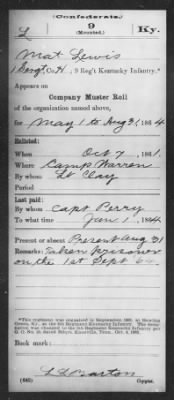 (Confederate.)
L 9 Ky.
(Mounted.)
Mat Lewis
Sergt, Co. H, 9 Reg't Kentucky Infantry.*
Appears on
Company Muster Roll
of the organization named above,
for May 1 to Aug 31, 1864
Enlisted:
When Oct 7, 1861.
Where Camp Warren
By whom Lt Clay
Period
Last paid:
By whom Capt Perry
To what time Jan 1, 1864
Present or absent Present Aug 31
Remarks: Taken prisoner
on the 1st Sept 64
Book mark:
L L Barton
(642) Copyist.